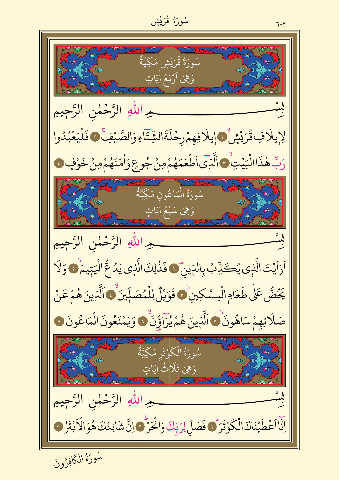 سُورَةُ قُرَيْشٍ ٦٠٢
سُورَةُ قُرَيْشٍ مَكِّيَّةٌ
وَهِيَ أَرْبَعُ اٰيَاتٍ
بِسْمِ اللّٰهِ الرَّحْمٰنِ الرَّحِيمِ
لِاِيلَافِ قُرَيْشٍۙ ﴿١﴾ اِيلَافِهِمْ رِحْلَةَ الشِّتَٓاءِ وَالصَّيْفِۚ ﴿٢﴾ فَلْيَعْبُدُوا
رَبَّ هٰذَا الْبَيْتِۙ ﴿٣﴾ اَلَّذِٓى اَطْعَمَهُمْ مِنْ جُوعٍ وَاٰمَنَهُمْ مِنْ خَوْفٍ ﴿٤﴾
سُورَةُ الْمَاعُونِ مَكِّيَّةٌ
وَهِيَ سَبْعُ اٰيَاتٍ
بِسْمِ اللّٰهِ الرَّحْمٰنِ الرَّحِيمِ
اَرَاَيْتَ الَّذِى يُكَذِّبُ بِالدِّينِۜ ﴿١﴾ فَذٰلِكَ الَّذِى يَدُعُّ الْيَتِيمَۙ ﴿٢﴾ وَلَا
يَحُضُّ عَلٰى طَعَامِ الْمِسْكِينِۜ ﴿٣﴾ فَوَيْلٌ لِلْمُصَلِّينَۙ ﴿٤﴾ اَلَّذِينَ هُمْ عَنْ
صَلَاتِهِمْ سَاهُونَۙ ﴿٥﴾ اَلَّذِينَ هُمْ يُرَٓاؤُ۫نَۙ ﴿٦﴾ وَيَمْنَعُونَ الْمَاعُونَ ﴿٧﴾
سُورَةُ الْكَوْثَرِ مَكِّيَّةٌ
وَهِيَ ثَلَاثُ اٰيَاتٍ
بِسْمِ اللّٰهِ الرَّحْمٰنِ الرَّحِيمِ
اِنَّٓا اَعْطَيْنَاكَ الْكَوْثَرَۜ ﴿١﴾ فَصَلِّ لِرَبِّكَ وَانْحَرْۜ ﴿٢﴾ اِنَّ شَانِئَكَ هُوَ الْاَبْتَرُ ﴿٣﴾
سُورَةُ الْكَافِرُونَ